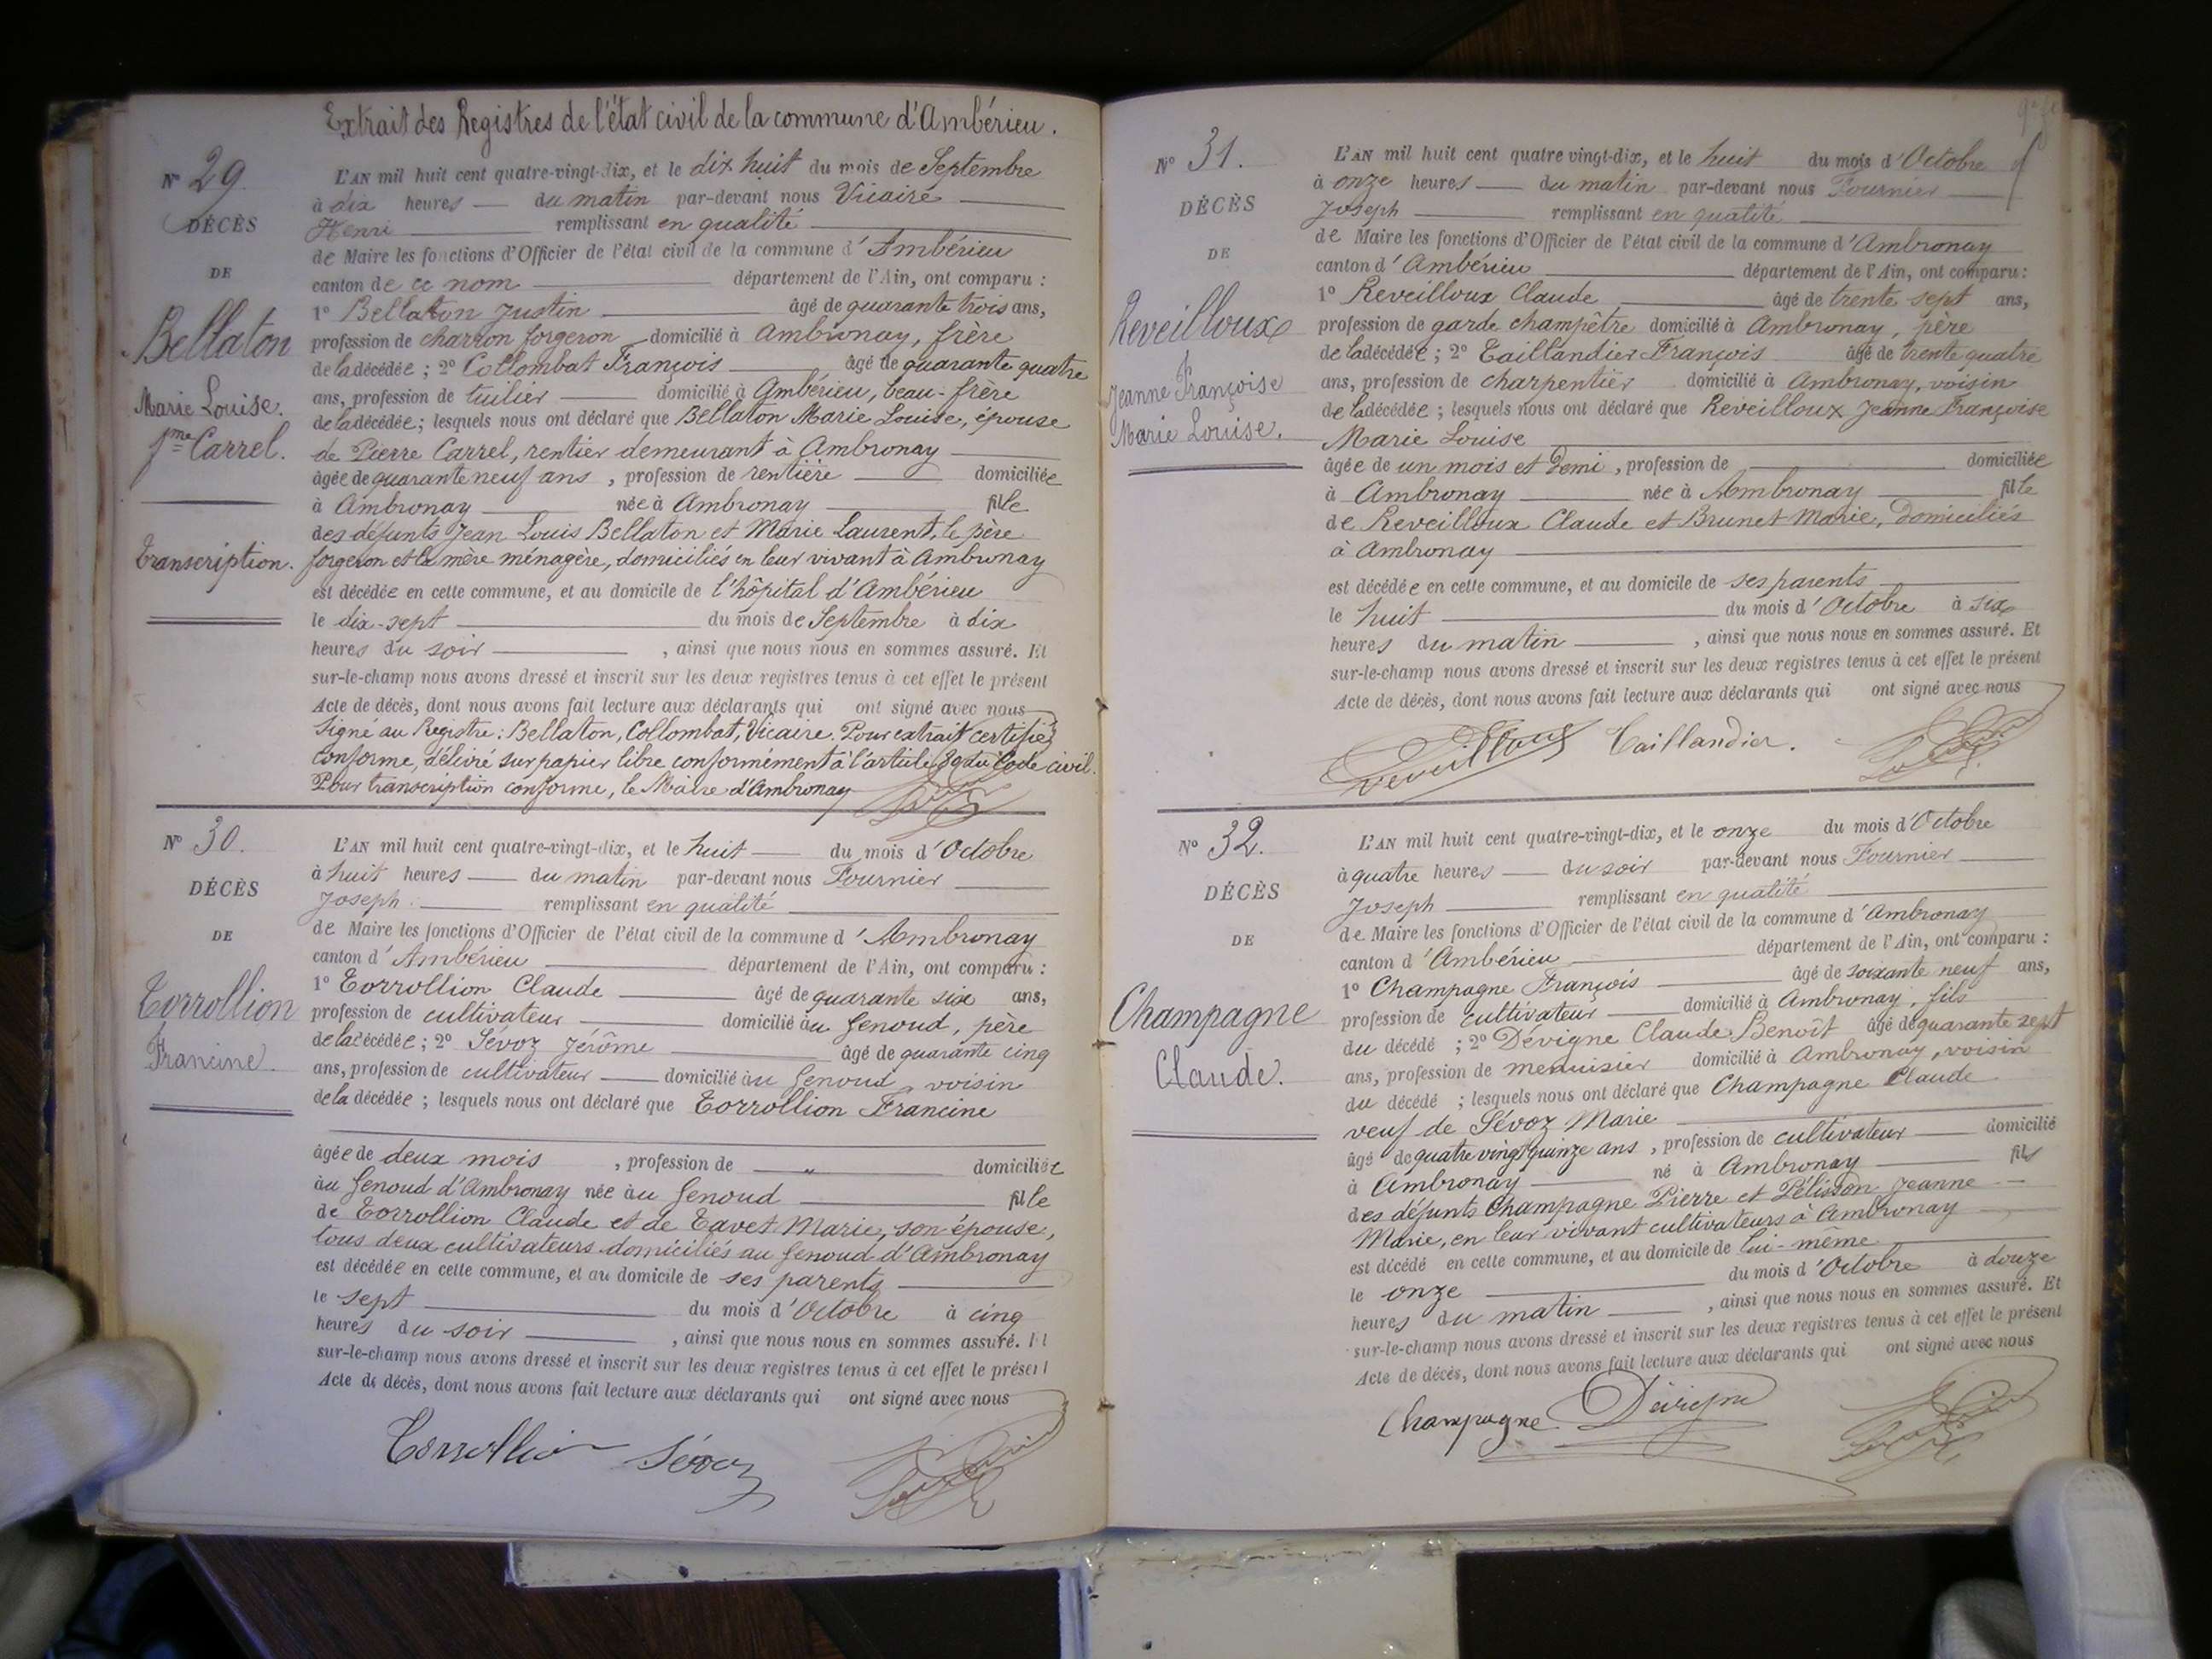 Extrait des Registres de l'état civil de la commune d'Ambérieu.
N° 29
DÉCÈS
DE
Bellaton
Marie Louise.
fme Carrel.
Transcription.
L'AN mil huit cent quatre-vingt-dix, et le dix huit du mois de Septembre
à dix heures du matin par-devant nous Vicaire
Henri remplissant en qualité
de Maire les fonctions d'Officier de l'état civil de la commune d'Ambérieu
canton de ce nom département de l'Ain, ont comparu :
1° Bellaton Justin âgé de quarante trois ans,
profession de charron forgeron domicilié à Ambronay, frère
de la décédée ; 2° Collombat François âgé de quarante quatre
ans, profession de tuilier domicilié à Ambérieu, beau-frère
de la décédée ; lesquels nous ont déclaré que Bellaton Marie Louise, épouse
de Pierre Carrel, rentier demeurant à Ambronay
âgée de quarante neuf ans, profession de rentière domiciliée
à Ambronay née à Ambronay fille
des défunts Jean Louis Bellaton et Marie Laurent, le père
forgeron et la mère ménagère, domiciliés en leur vivant à Ambronay
est décédée en cette commune, et au domicile de l'hôpital d'Ambérieu
le dix-sept du mois de Septembre à dix
heures du soir, ainsi que nous nous en sommes assuré. Et
sur-le-champ nous avons dressé et inscrit sur les deux registres tenus à cet effet le présent
Acte de décès, dont nous avons fait lecture aux déclarants qui ont signé avec nous
Signé au Registre : Bellaton, Collombat, Vicaire. Pour extrait certifié
conforme, délivré sur papier libre conformément à l'article 80 du Code civil.
Pour transcription conforme, le Maire d'Ambronay
N° 30.
DÉCÈS
DE
Torrollion
Francine.
L'AN mil huit cent quatre-vingt-dix, et le huit du mois d'Octobre
à huit heures du matin par-devant nous Fournier
Joseph remplissant en qualité
de Maire les fonctions d'Officier de l'état civil de la commune d'Ambronay
canton d'Ambérieu département de l'Ain, ont comparu :
1° Torrollion Claude âgé de quarante six ans,
profession de cultivateur domicilié au Genoud, père
de la décédée ; 2° Sévoz Jérôme âgé de quarante cinq
ans, profession de cultivateur domicilié au Genoud, voisin
de la décédée ; lesquels nous ont déclaré que Torrollion Francine
âgée de deux mois, profession de " domiciliée
au Genoud d'Ambronay née au Genoud fille
de Torrollion Claude et de Tavet Marie, son épouse,
tous deux cultivateurs domiciliés au Genoud d'Ambronay
est décédée en cette commune, et au domicile de ses parents
le sept du mois d'Octobre à cinq
heures du soir, ainsi que nous nous en sommes assuré. Et
sur-le-champ nous avons dressé et inscrit sur les deux registres tenus à cet effet le présent
Acte de décès, dont nous avons fait lecture aux déclarants qui ont signé avec nous
Torrollion Sévoz
N° 31.
DÉCÈS
DE
Reveilloux
Jeanne Françoise
Marie Louise.
L'AN mil huit cent quatre vingt-dix, et le huit du mois d'Octobre
à onze heures du matin par-devant nous Fournier
Joseph remplissant en qualité
de Maire les fonctions d'Officier de l'état civil de la commune d'Ambronay
canton d'Ambérieu département de l'Ain, ont comparu :
1° Reveilloux Claude âgé de trente sept ans,
profession de garde champêtre domicilié à Ambronay, père
de la décédée ; 2° Taillandier François âgé de trente quatre
ans, profession de charpentier domicilié à Ambronay, voisin
de la décédée ; lesquels nous ont déclaré que Reveilloux Jeanne Françoise
Marie Louise
âgée de un mois et Demi, profession de domiciliée
à Ambronay née à Ambronay fille
de Reveilloux Claude et Brunet Marie, Domiciliés
à Ambronay
est décédée en cette commune, et au domicile de ses parents
le huit du mois d'Octobre à six
heures du matin, ainsi que nous nous en sommes assuré. Et
sur-le-champ nous avons dressé et inscrit sur les deux registres tenus à cet effet le présent
Acte de décès, dont nous avons fait lecture aux déclarants qui ont signé avec nous
Reveilloux Taillandier.
N° 32.
DÉCÈS
DE
Champagne
Claude.
L'AN mil huit cent quatre-vingt-dix, et le onze du mois d'Octobre
à quatre heures du soir par-devant nous Fournier
Joseph remplissant en qualité
de Maire les fonctions d'Officier de l'état civil de la commune d'Ambronay
canton d'Ambérieu département de l'Ain, ont comparu :
1° Champagne François âgé de soixante neuf ans,
profession de cultivateur domicilié à Ambronay, fils
du décédé ; 2° Dévigne Claude Benoît âgé de quarante sept
ans, profession de menuisier domicilié à Ambronay, voisin
du décédé ; lesquels nous ont déclaré que Champagne Claude
veuf de Sévoz Marie
âgé de quatre vingt quinze ans, profession de cultivateur domicilié
à Ambronay né à Ambronay fils
des défunts Champagne Pierre et Pélisson Jeanne
Marie, en leur vivant cultivateurs à Ambronay
est décédé en cette commune, et au domicile de lui-même
le onze du mois d'Octobre à douze
heures du matin, ainsi que nous nous en sommes assuré. Et
sur-le-champ nous avons dressé et inscrit sur les deux registres tenus à cet effet le présent
Acte de décès, dont nous avons fait lecture aux déclarants qui ont signé avec nous
Champagne Dévigne